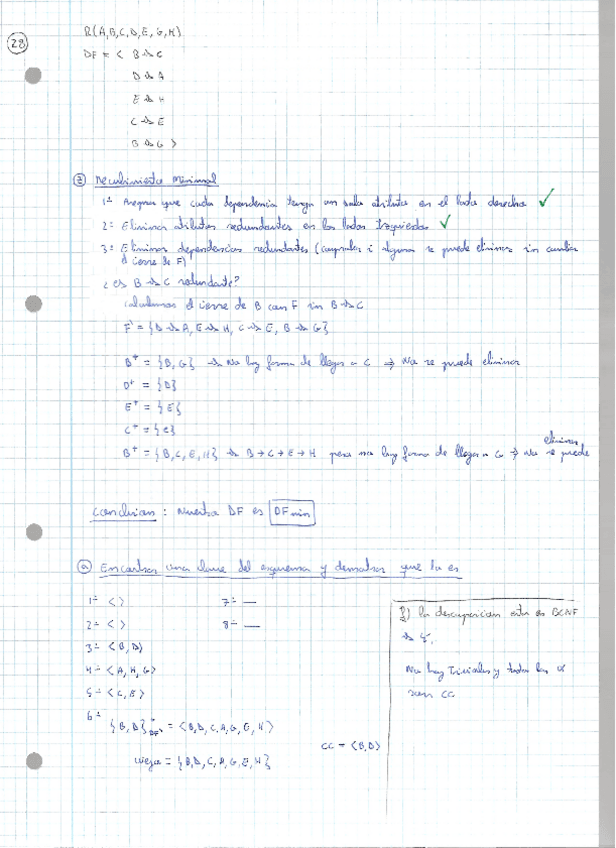 28
R(A,B,C,D,E,G,H)
DF = < B → C
D → A
E → H
C → E
B → G >
② Recubrimiento minimal
1º Asegurar que cada dependencia tenga un solo atributo en el lado derecho ✓
2º Eliminar atributos redundantes en los lados Izquierdos ✓
3º Eliminar dependencias redundantes (comprobar si alguna se puede eliminar sin cambiar
el cierre de F)
¿es B → C redundante?
Calculamos el cierre de B con F sin B → C
F' = {D → A, E → H, C → E, B → G}
B⁺ = {B, G} → No hay forma de llegar a C ⇒ No se puede eliminar
D⁺ = {D}
E⁺ = {E}
C⁺ = {C}
B⁺ = {B, C, E, H} → B → C → E → H pero no hay forma de llegar a G ⇒ No se puede
eliminar
Conclusion: Nuestra DF es DF min
ⓐ Encontrar una clave del esquema y demostrar que lo es
1º < >
2º < >
3º <B, D>
4º <A, H, G>
5º <C, E>
6º {B, D}⁺ = <B, D, C, A, G, E, H>
DF
= {B, D, C, A, G, E, H}
CC = <B, D>
7º —
8º —
la descomposicion esta en BCNF
No hay Triviales y todos los α
son CC